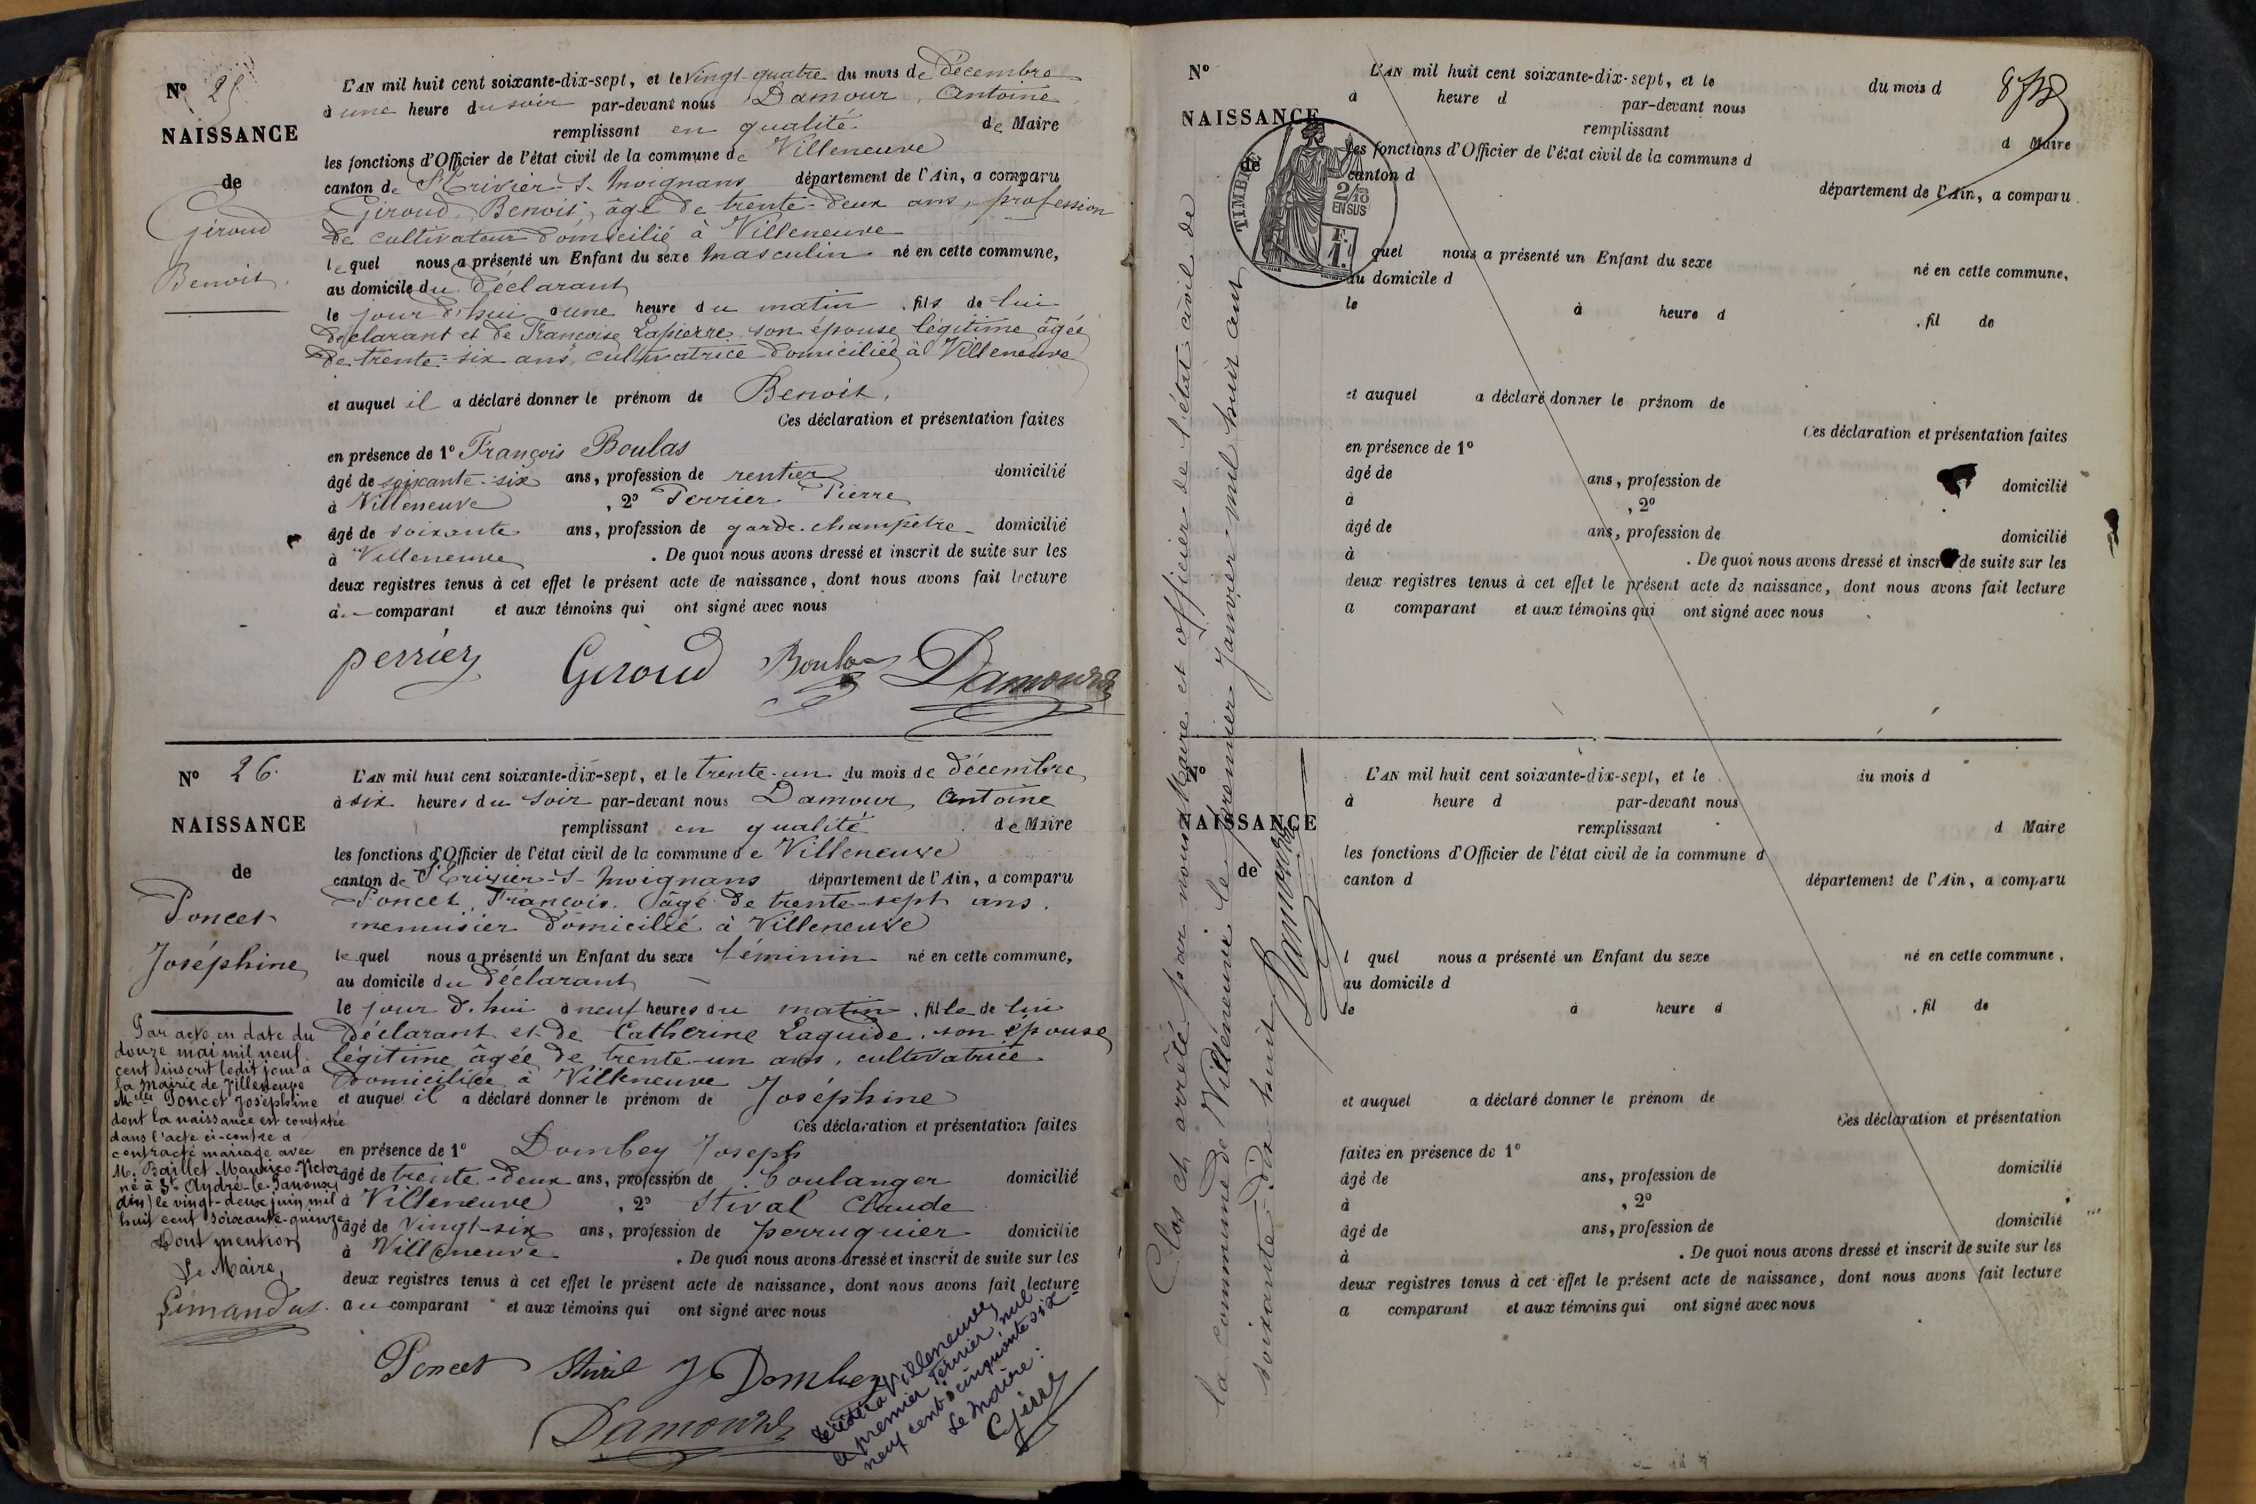 N° 25
NAISSANCE
de
Giroud
Benoit.
L'AN mil huit cent soixante-dix-sept, et le Vingt-quatre du mois de Décembre
à une heure du soir par-devant nous Damour, Antoine
remplissant en qualité de Maire
les fonctions d'Officier de l'état civil de la commune de Villeneuve
canton de St Trivier-s-Moignans département de l'Ain, a comparu
Giroud, Benoit, âgé de trente-deux ans, profession
de cultivateur domicilié à Villeneuve
lequel nous a présenté un Enfant du sexe masculin né en cette commune,
au domicile du déclarant
le jour d'hui à une heure du matin, fils de lui
déclarant et de Françoise Lapierre son épouse légitime âgée
de trente-six ans, cultivatrice domiciliée à Villeneuve
et auquel il a déclaré donner le prénom de Benoit,
Ces déclaration et présentation faites
en présence de 1° François Boulas
âgé de soixante-six ans, profession de rentier domicilié
à Villeneuve, 2° Perrier Pierre
âgé de soixante ans, profession de garde-champêtre domicilié
à Villeneuve. De quoi nous avons dressé et inscrit de suite sur les
deux registres tenus à cet effet le présent acte de naissance, dont nous avons fait lecture
à comparant et aux témoins qui ont signé avec nous
perrier Giroud Boulas Damour
N° 26.
NAISSANCE
de
Poncet
Joséphine
L'AN mil huit cent soixante-dix-sept, et le trente-un du mois de décembre
à six heures du soir par-devant nous Damour, Antoine
remplissant en qualité de Maire
les fonctions d'Officier de l'état civil de la commune de Villeneuve
canton de St Trivier-s-Moignans département de l'Ain, a comparu
Poncet, François, âgé de trente-sept ans,
menuisier domicilié à Villeneuve
lequel nous a présenté un Enfant du sexe féminin né en cette commune,
au domicile du déclarant
le jour d'hui à neuf heures du matin, fille de lui
déclarant et de Catherine Laguide, son épouse
légitime âgée de trente-un ans, cultivatrice
domiciliée à Villeneuve
et auquel il a déclaré donner le prénom de Joséphine
Ces déclaration et présentation faites
en présence de 1° Dombey Joseph
âgé de trente-deux ans, profession de boulanger domicilié
à Villeneuve, 2° Stival Claude
âgé de vingt-six ans, profession de perruquier domicilié
à Villeneuve. De quoi nous avons dressé et inscrit de suite sur les
deux registres tenus à cet effet le présent acte de naissance, dont nous avons fait lecture
au comparant et aux témoins qui ont signé avec nous
Poncet Stival J Dombey
Damour
Par acte en date du
douze mai mil neuf
cent inscrit ledit jour à
la mairie de Villeneuve
Melle Poncet Joséphine
dont la naissance est constatée
dans l'acte ci-contre a
contracté mariage avec
M. Baillet Maurice-Victor
né à St André-le-Panoux
(Ain) le vingt-deux juin mil
huit cent soixante-quinze
Dont mention
Le Maire,
Décédée à Villeneuve
le premier février mil
neuf cent cinquante six
Le Maire:
Clos et arrêté par nous Maire et officier de l'état civil de
la commune de Villeneuve le premier Janvier mil huit cent
soixante-dix huit
Damour
N°
NAISSANCE
de
TIMBRE
2/10
EN SUS
F.
1.
L'AN mil huit cent soixante-dix-sept, et le du mois d
à heure d par-devant nous
remplissant d Maire
les fonctions d'Officier de l'état civil de la commune d
canton d département de l'Ain, a comparu
quel nous a présenté un Enfant du sexe né en cette commune,
au domicile d
le à heure d , fil de
et auquel a déclaré donner le prénom de
Ces déclaration et présentation faites
en présence de 1°
âgé de ans, profession de domicilié
à , 2°
âgé de ans, profession de domicilié
à . De quoi nous avons dressé et inscrit de suite sur les
deux registres tenus à cet effet le présent acte de naissance, dont nous avons fait lecture
a comparant et aux témoins qui ont signé avec nous
N°
NAISSANCE
de
L'AN mil huit cent soixante-dix-sept, et le du mois d
à heure d par-devant nous
remplissant d Maire
les fonctions d'Officier de l'état civil de la commune d
canton d département de l'Ain, a comparu
l quel nous a présenté un Enfant du sexe né en cette commune,
au domicile d
le à heure d , fil de
et auquel a déclaré donner le prénom de
Ces déclaration et présentation
faites en présence de 1°
âgé de ans, profession de domicilié
à , 2°
âgé de ans, profession de domicilié
à . De quoi nous avons dressé et inscrit de suite sur les
deux registres tenus à cet effet le présent acte de naissance, dont nous avons fait lecture
a comparant et aux témoins qui ont signé avec nous